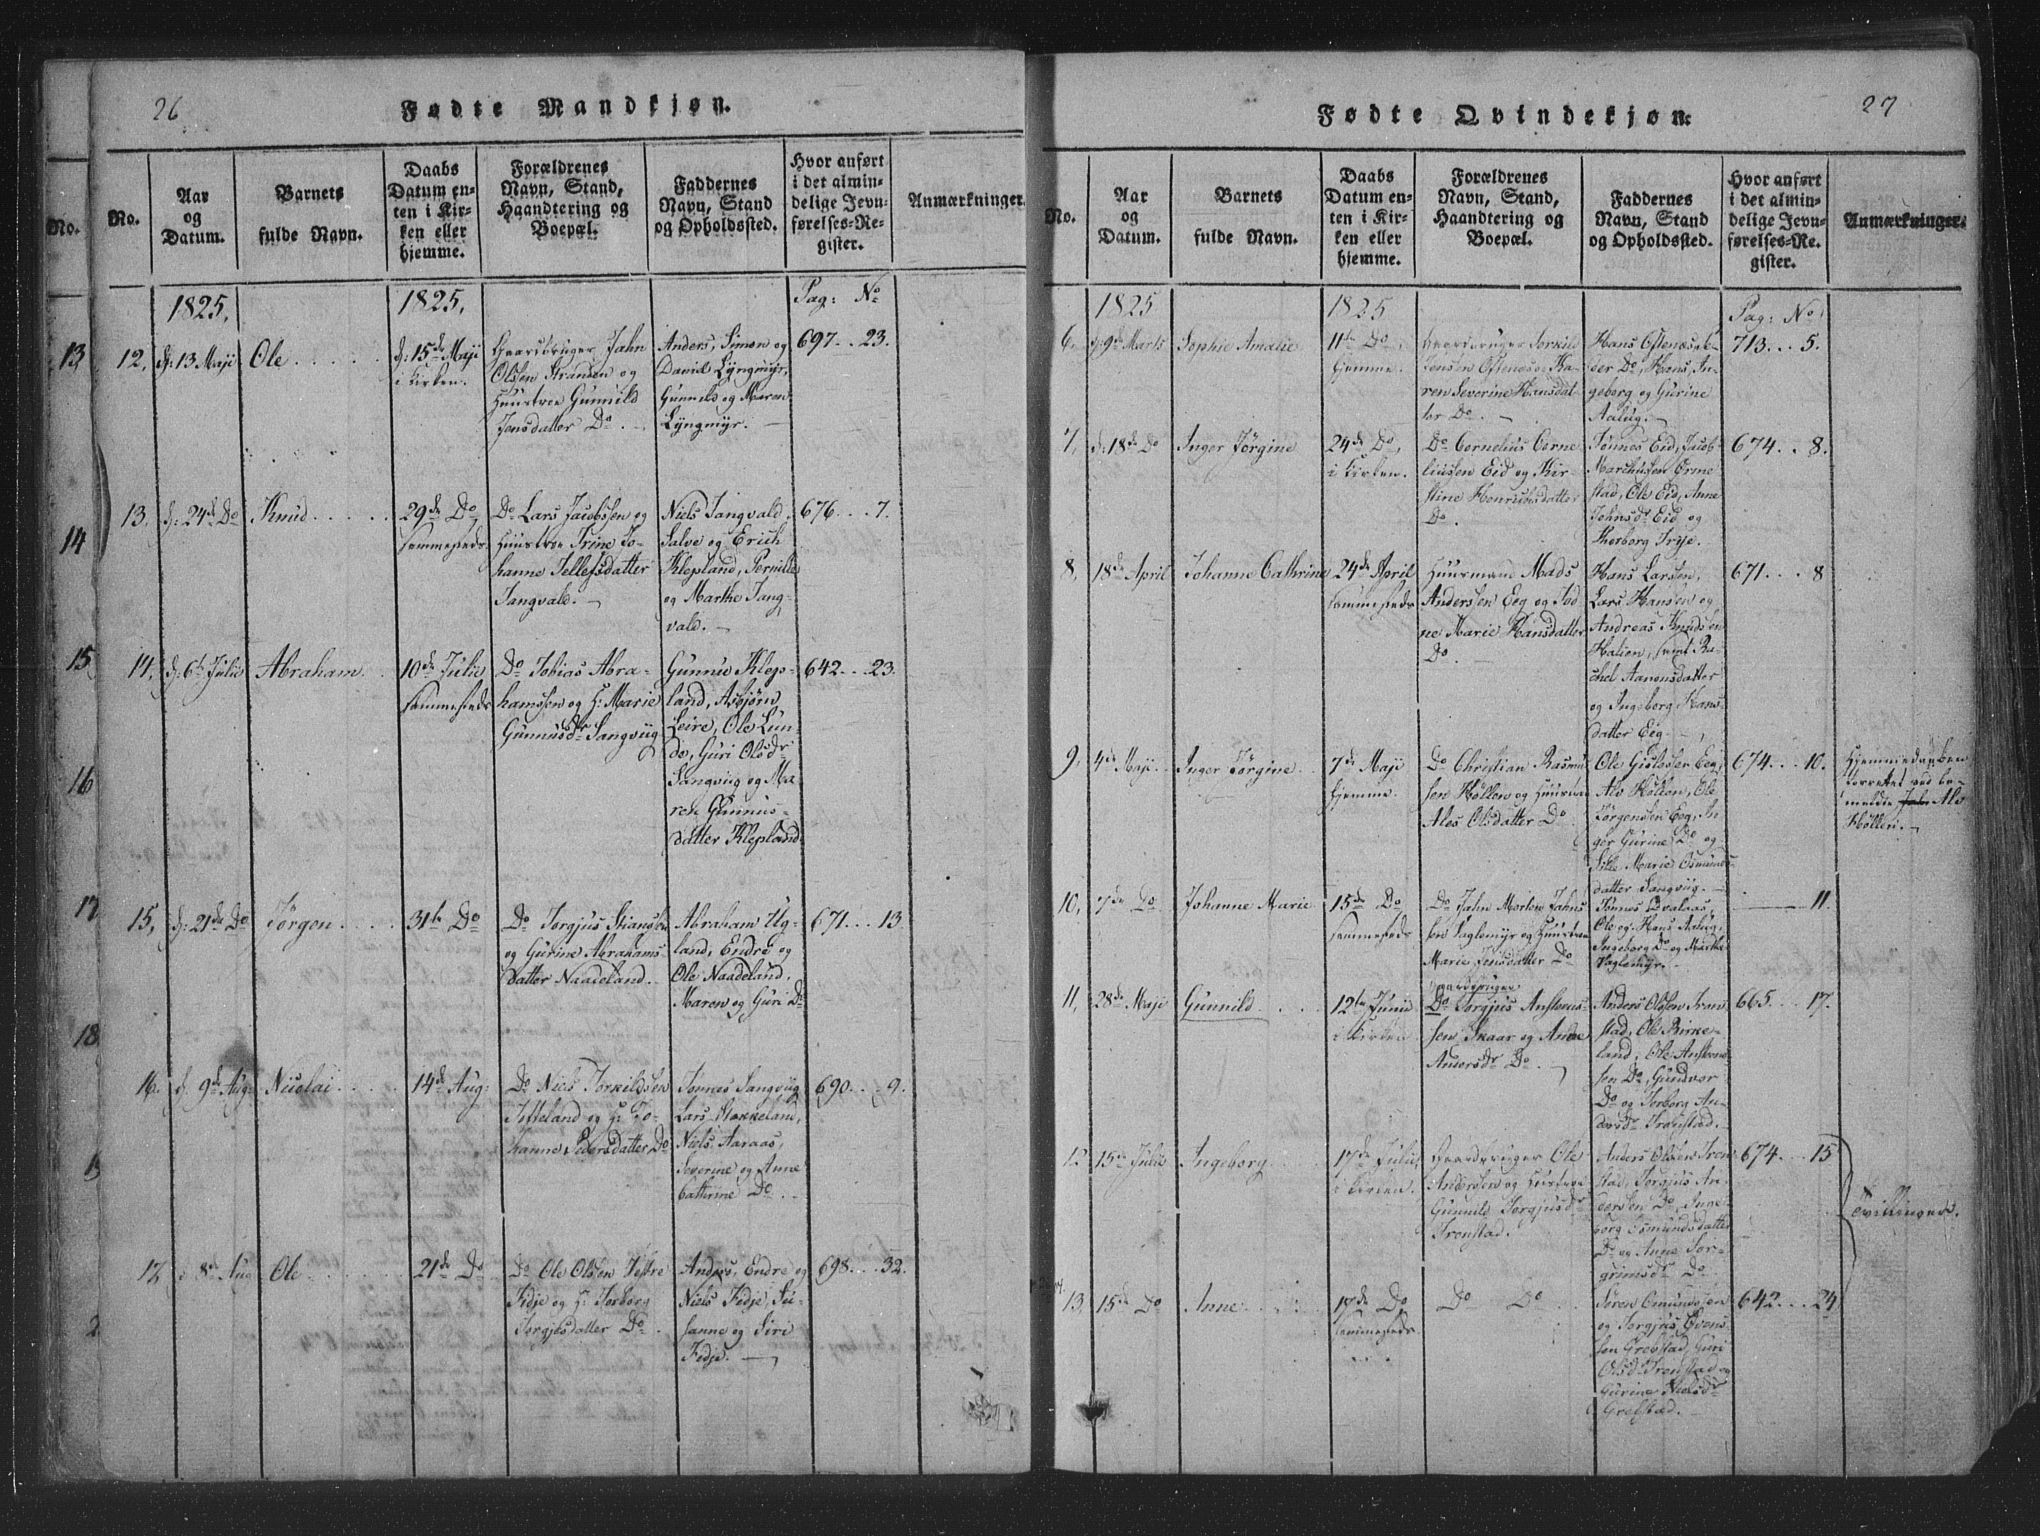 26
Fødte Mandkjøn.
No.
Aar
og
Datum.
Barnets
fulde Navn.
Daabs
Datum en-
ten i Kir-
ken eller
hjemme.
Forældrenes
Navn, Stand,
Haandtering og
Boepæl.
Faddernes
Navn, Stand
og Opholdssted.
Hvor anført
i det almin-
delige Jevn-
førelses-Re-
gister.
Anmærkninger.
1825.
1825.
Pag: No
12. d: 13 Maji
Ole
d: 15de Maji
i Kirken.
Gaardbruger Jahn
Olsen Strandn og
Huustroe Gunnild
Jensdatter Do.
Anders, Simon og
Daniel Lyngmyr,
Gunnild og Maren
Lyngmyr.
697 23.
13. d: 24de Do
Knud
29de Do
sammesteds
Do Lars Jacobsen og
Huustroe Trine Jo-
hanne Tellefsdatter
Tangvald.
Niels Tangvald.
Salve og Erich
Klepland, Pernille
og Marthe Tang-
vald.
676 7.
14. d: 6te Julie
Abraham
10de Julie
sammesteds
Do Tobias Abra-
hamsen og H: Marie
Gunnusdr Sangviig
Gunnu Klep-
land, Asbjørn
Leire, Ole Lun-
de, Guri Olsdr
Sangviig og Ma-
ren Gunnus-
datter Klepland
642 23.
15. d: 21de Do
Jørgen
31te Do
Do Torgjus Stiansen
og Gurine Abrahams-
datter Naadeland.
Abraham Ug-
land, Endre og
Ole Naadeland.
Maren og Guri Do
671 13
16. d. 9de Aug
Nicolai
14de Aug:
Do Niels Torkildsen
og H: Jo-
hanne Pedersdatter Do
Tønnes Sangviig
Lars Stokkeland,
Niels Aaraas,
Severine og Anne
Cathrine Do.
690 9.
17. d 8de Aug
Ole
21de Do
Do Ole Olsen
Fidje og H: Torborg
Torgjusdatter Do
Anders, Endre og
Niels Fidje, Su-
sanne og Siri
Fidje.
698 32.
13
14
15
16
17
18
27
Fødte Qvindekjøn.
No.
Aar
og
Datum.
Barnets
fulde Navn.
Daabs
Datum en-
ten i Kir-
ken eller
hjemme.
Forældrenes
Navn, Stand,
Haandtering og
Boepæl.
Faddernes
Navn, Stand
og Opholdssted.
Hvor anført
i det almin-
delige Jevn-
førelses-Re-
gister.
Anmærkninger.
1825
1825
Pag: No
6. d: 9de Marts
Sophie Amalie
11te Do
hjemme.
Gaardbruger Torkild
Jensen Ostenæs og Ka-
ren Severine Hansdat-
ter Do.
Hans Ostenæs
Do, Hans, In-
geborg og Gurine
713 5.
7. d: 18de Do
Inger Jørgine
24de Do,
i Kirken.
Do Cornelius Corne-
liusen Eid og Kir-
stine Henrichsdatter
Do.
Tønnes Eid, Jacob
Marchusen Orme-
stad, Ole Eid, Anne
Johnsdr Eid og
Torborg
674 8.
8. 18de April
Johanne Cathrine
24de April
sammesteds
Huusmand Mads
Andersen Eeg og
Marie Hansdatter
Do
Hans Larsen,
Lars Hansen og
Andreas Knudsen
samt Ra-
chel Aanensdatter
og Ingeborg Hans-
datter Eeg.
671 8
9. 4de Maji
Inger Jørgine
7de Maji
hjemme.
Do Christian Rasmu-
sen Høllen og Huustroe
Ales Olsdatter Do
Ole Gislesen Eeg
Alv Høllen, Ole
Jørgensen Eeg, In-
ger Gurine Do og
Marie Osmunds-
datter Sangviig.
674 10.
Hjemmedaaben
forrettet ved be-
meldte Alv
Høllen.
10. 7de Do
Johanne Marie
15de Do
sammesteds
Do Jahn Morten Jahn-
sen Vaglemyr og Huustroe
Marie Jensdatter Do
Tønnes
Ole og Hans
Ingeborg Do og Marthe
Vaglemyr.
11.
11. 28de Maji
Gunnild
12te Junii
i Kirken
Gaardbruger
Do Torgjus Anstens-
sen Skaar og Anne
Andersdr Do.
Anders Olsen Tron-
stad, Ole Birke-
land, Ole Anstens-
sen Do, Gundvor
Do og Torborg An-
dersdr Tronstad.
665 17.
12 15de Julie
Ingeborg
17de Julii
i Kirken.
Gaardbruger Ole
Andersen og Huustroe
Gunnild Torgjusdr
Tronstad.
Anders Olsen Tron-
stad, Torgjus An-
dersen Do, Inge-
borg Osmundsdatter
Do og Anne Tor-
grimsdr Do
674 15
Tvillinger.
13. 15de Do
Anne
17de Do
sammesteds
Do Do
Søren Omundsen
og Torgjus Evens-
sen Grefstad, Guri
Olsdr Tronstad og
Gurine Nielsdr
Grefstad.
642 24